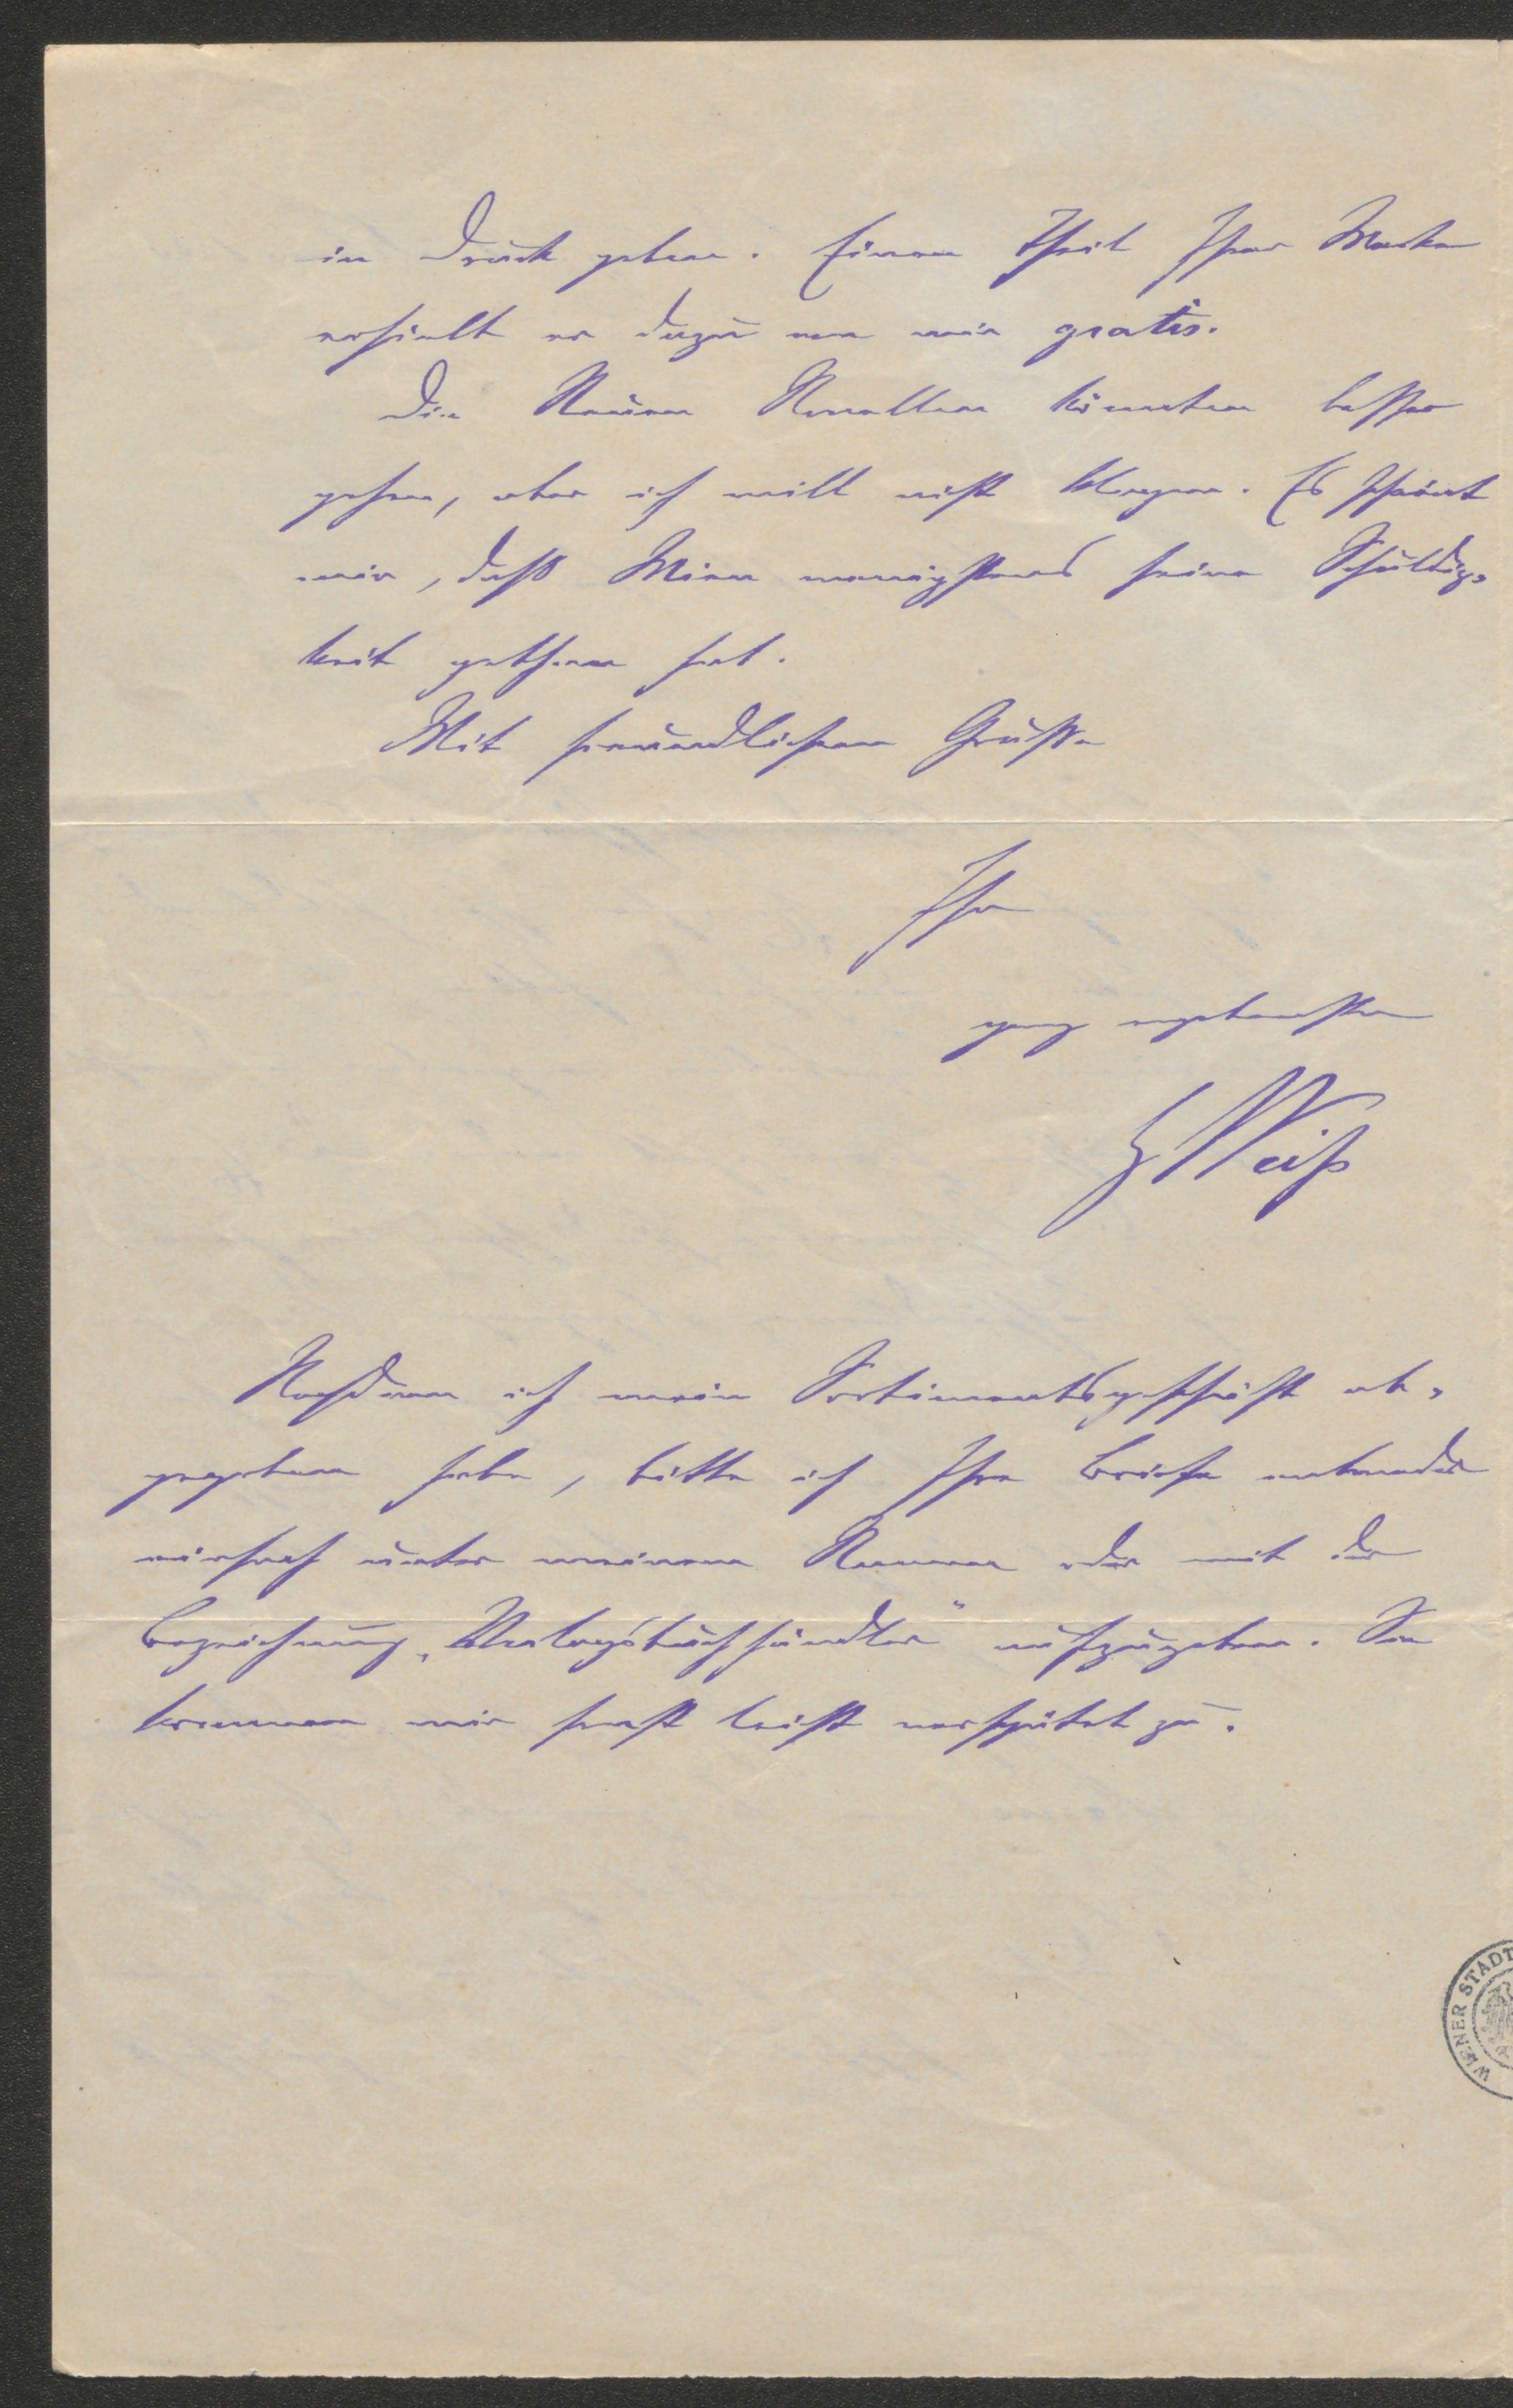 in Druck geben. Einen Theil Ihrer Werke
erhielt er dazu von mir gratis.
Die Neuen Novellen könnten besser
gehen, aber ich will nicht klagen. Es scheint
mir, daß Wien wenigstens seine Schuldig-
keit gethan hat.
Mit freundlichem Gruße
Ihr
ganz ergebenster
HWeiß
Nachdem ich mein Sortimentsgeschäft ab-
gegeben habe, bitte ich Ihre Briefe entweder
einfach unter meinem Namen oder mit der
Bezeichnung „Verlagsbuchhändler" aufzugeben. Sie
kommen mir sonst leicht verspätet zu.
WIENER STADT